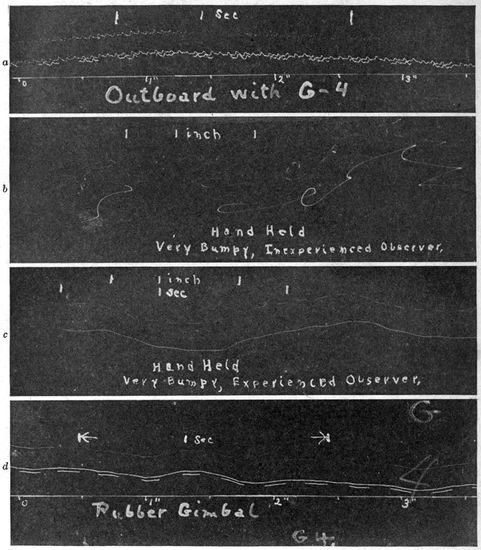 1 Sec
a
0 1" 2" 3"
Outboard with G-4
1 inch
b
Hand Held
Very Bumpy, Inexperienced Observer,
1 inch
1 sec
c
Hand Held
Very Bumpy, Experienced Observer,
G-
4
1 Sec
d
0 1" 2" 3"
Rubber Gimbal
G4.